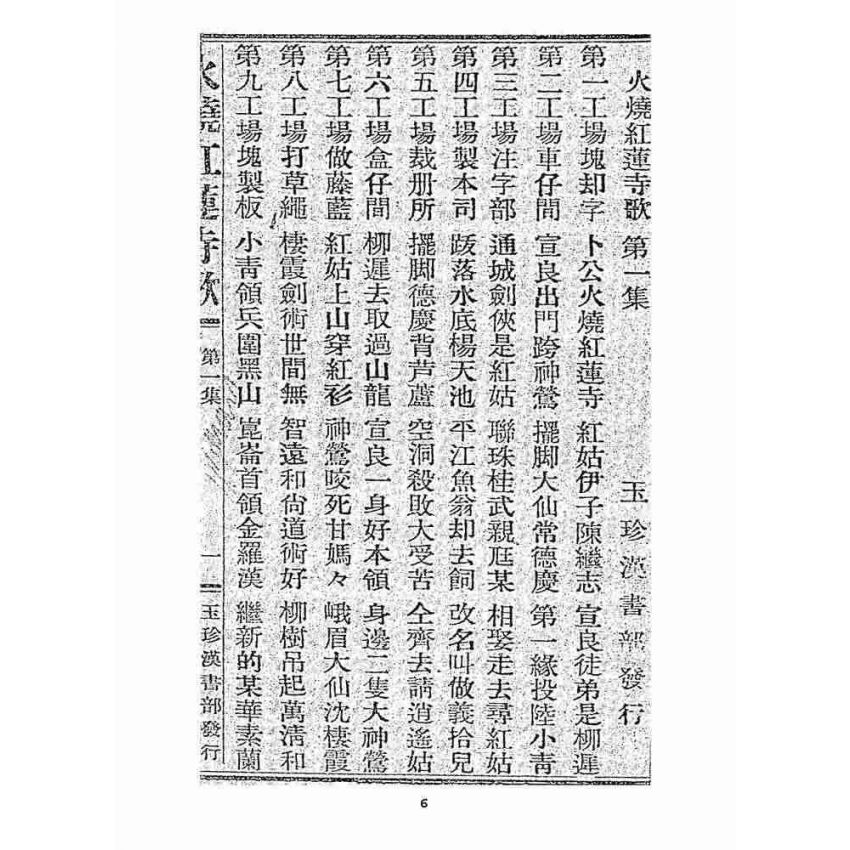 火燒紅蓮寺歌 第一集 玉珍漢書部發行
第一工場塊却字 卜公火燒紅蓮寺 紅姑伊子陳繼志 宣良徒弟是柳遲
第二工場車仔間 宣良出門跨神鶯 擺脚大仙常德慶 第一緣投陸小靑
第三工場注字部 通城劍俠是紅姑 聯珠桂武親尫某 相娶走去尋紅姑
第四工場製本司 跋落水底楊天池 平江魚翁却去飼 改名叫做義拾兒
第五工場裁册所 擺脚德慶背芦蘆 空洞殺敗大受苦 仝齊去請逍遙姑
第六工場盒仔間 柳遲去取過山龍 宣良一身好本領 身邊二隻大神鶯
第七工場做藤藍 紅姑上山穿紅衫 神鶯咬死甘媽々 峨眉大仙沈棲霞
第八工場打草繩 棲霞劍術世間無 智遠和尙道術好 柳樹吊起萬淸和
第九工場塊製板 小靑領兵圍黑山 崑崙首領金羅漢 繼新的某華素蘭
火燒紅蓮寺歌 第一集 一 玉珍漢書部發行
6